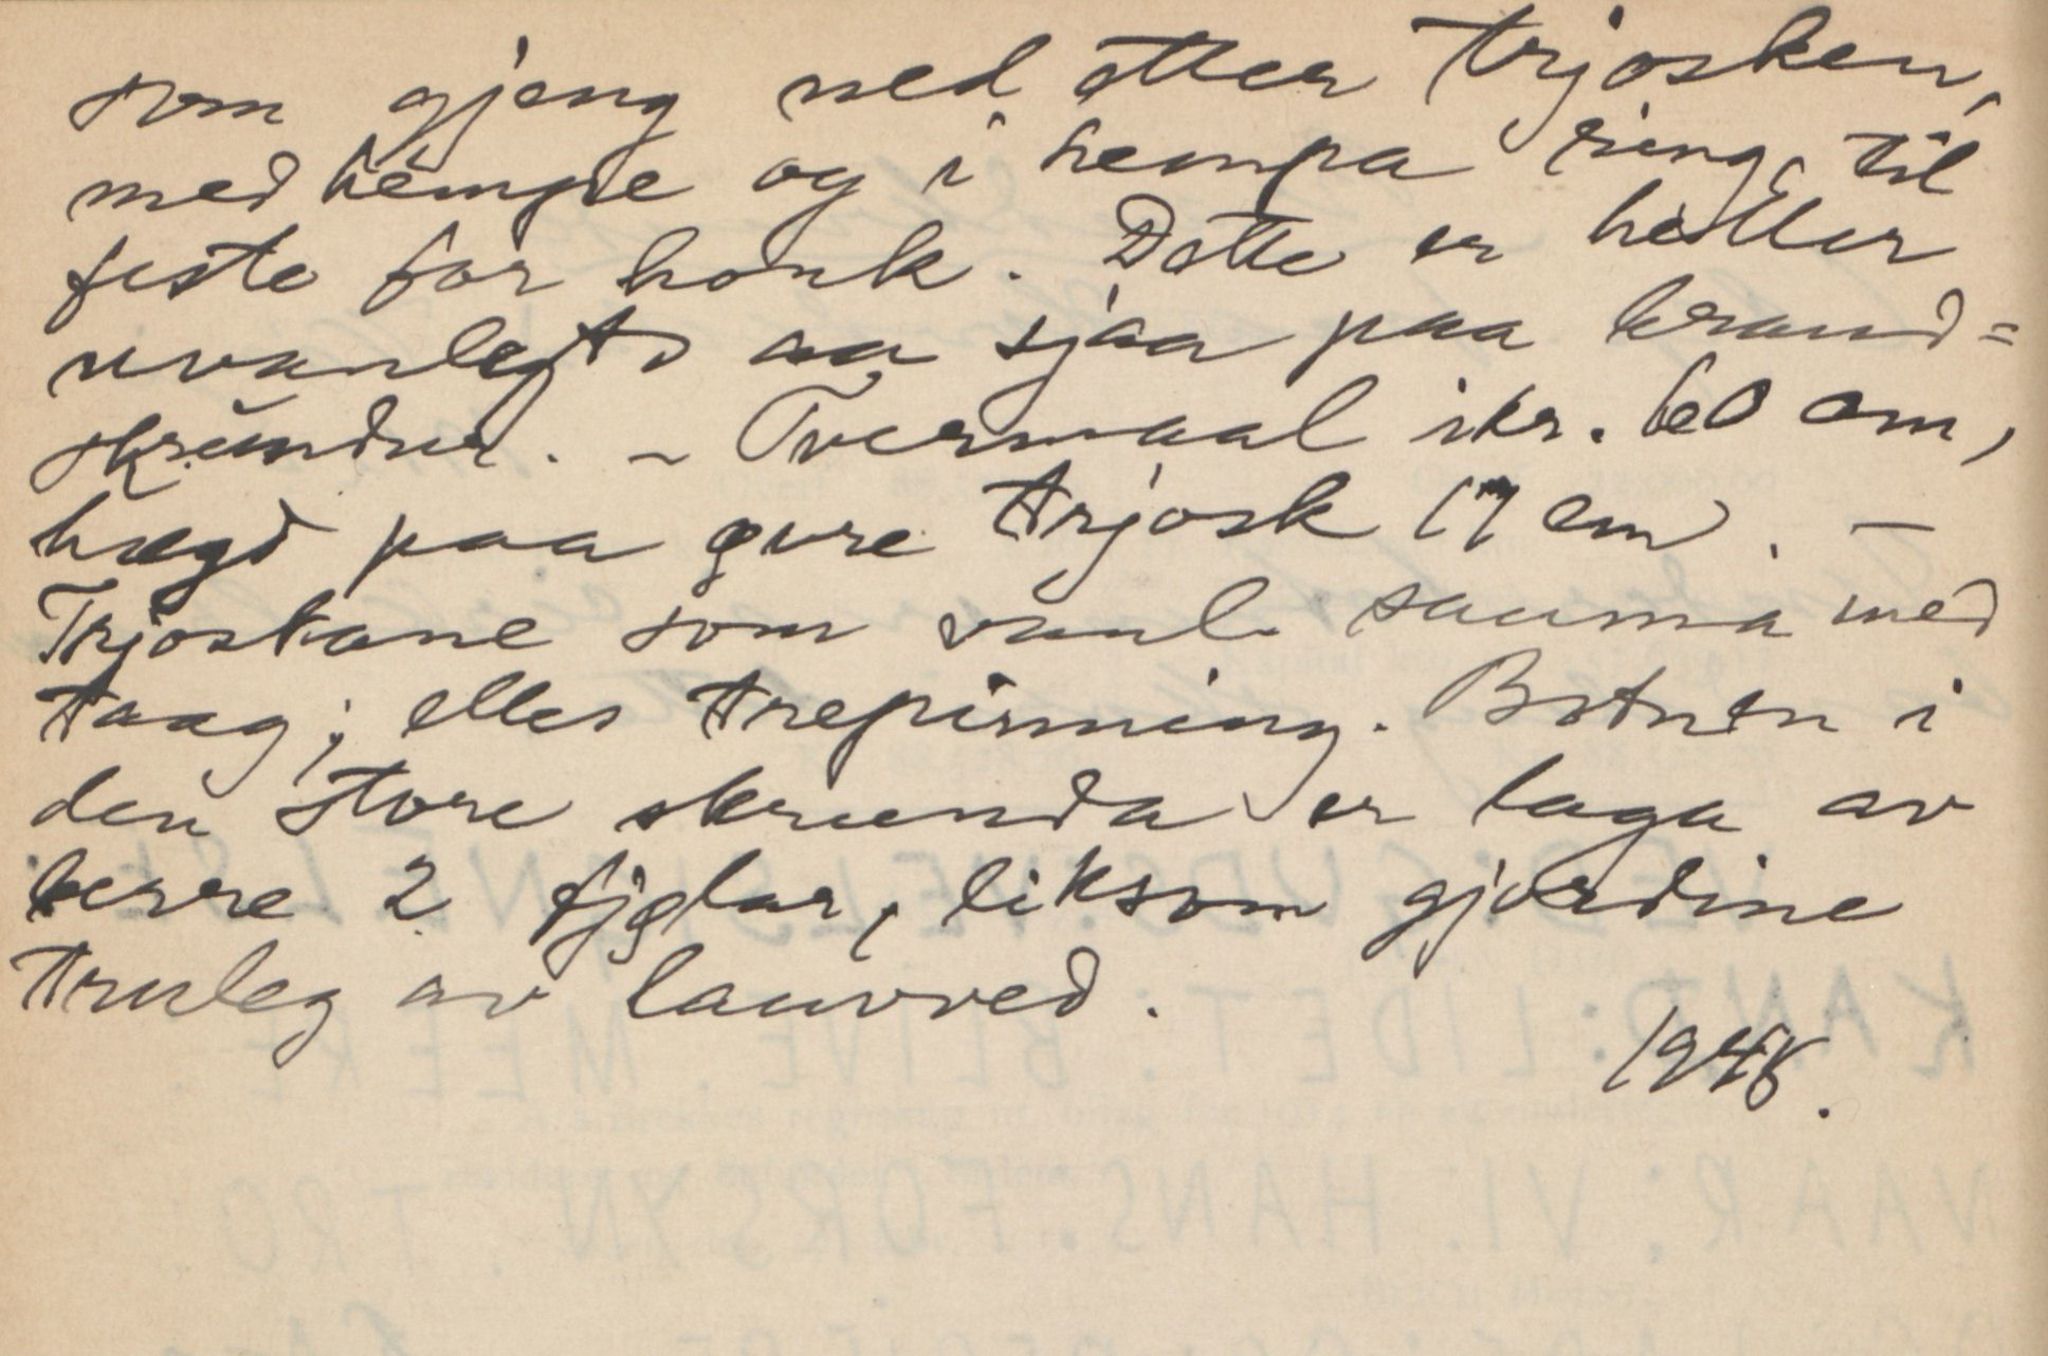 som gjeng ned etter trjosken,
med hempe og i hempa ring, til
feste for honk. Dette er heller
uvanlegt aa sjaa paa brand=
skrundur. - Tvermaal ikr. 60 cm,
høgd paa øvre trjosk 17 cm. -
Trjoskane som vanl. sauma med
taag; elles trepinning. Botnen i
den store skrunda er laga av
berre 2 fjølar, liksom gjordine
truleg av lauvved.
1948.